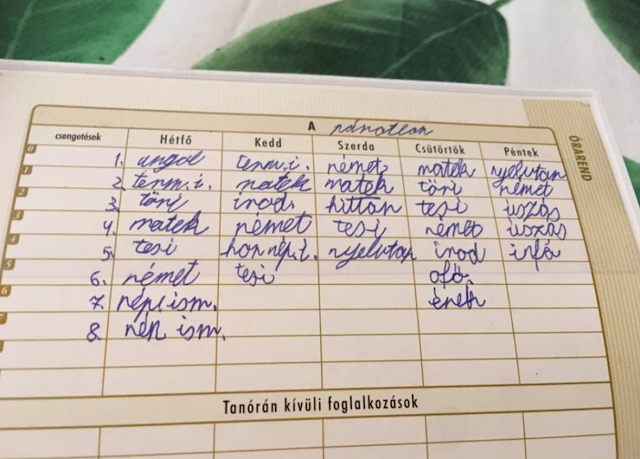 A páratlan
csengetések Hétfő Kedd Szerda Csütörtök Péntek
ÓRAREND
1. angol term.i. német matek nyelvtan
2. term.i. matek matek töri német
3. töri irod hittan tesi úszás
4. matek német tesi német úszás
5. tesi hon nép.i. nyelvtan irod infó
6. német tesi ofő.
7. nép ism. ének
8. nép ism.
Tanórán kívüli foglalkozások